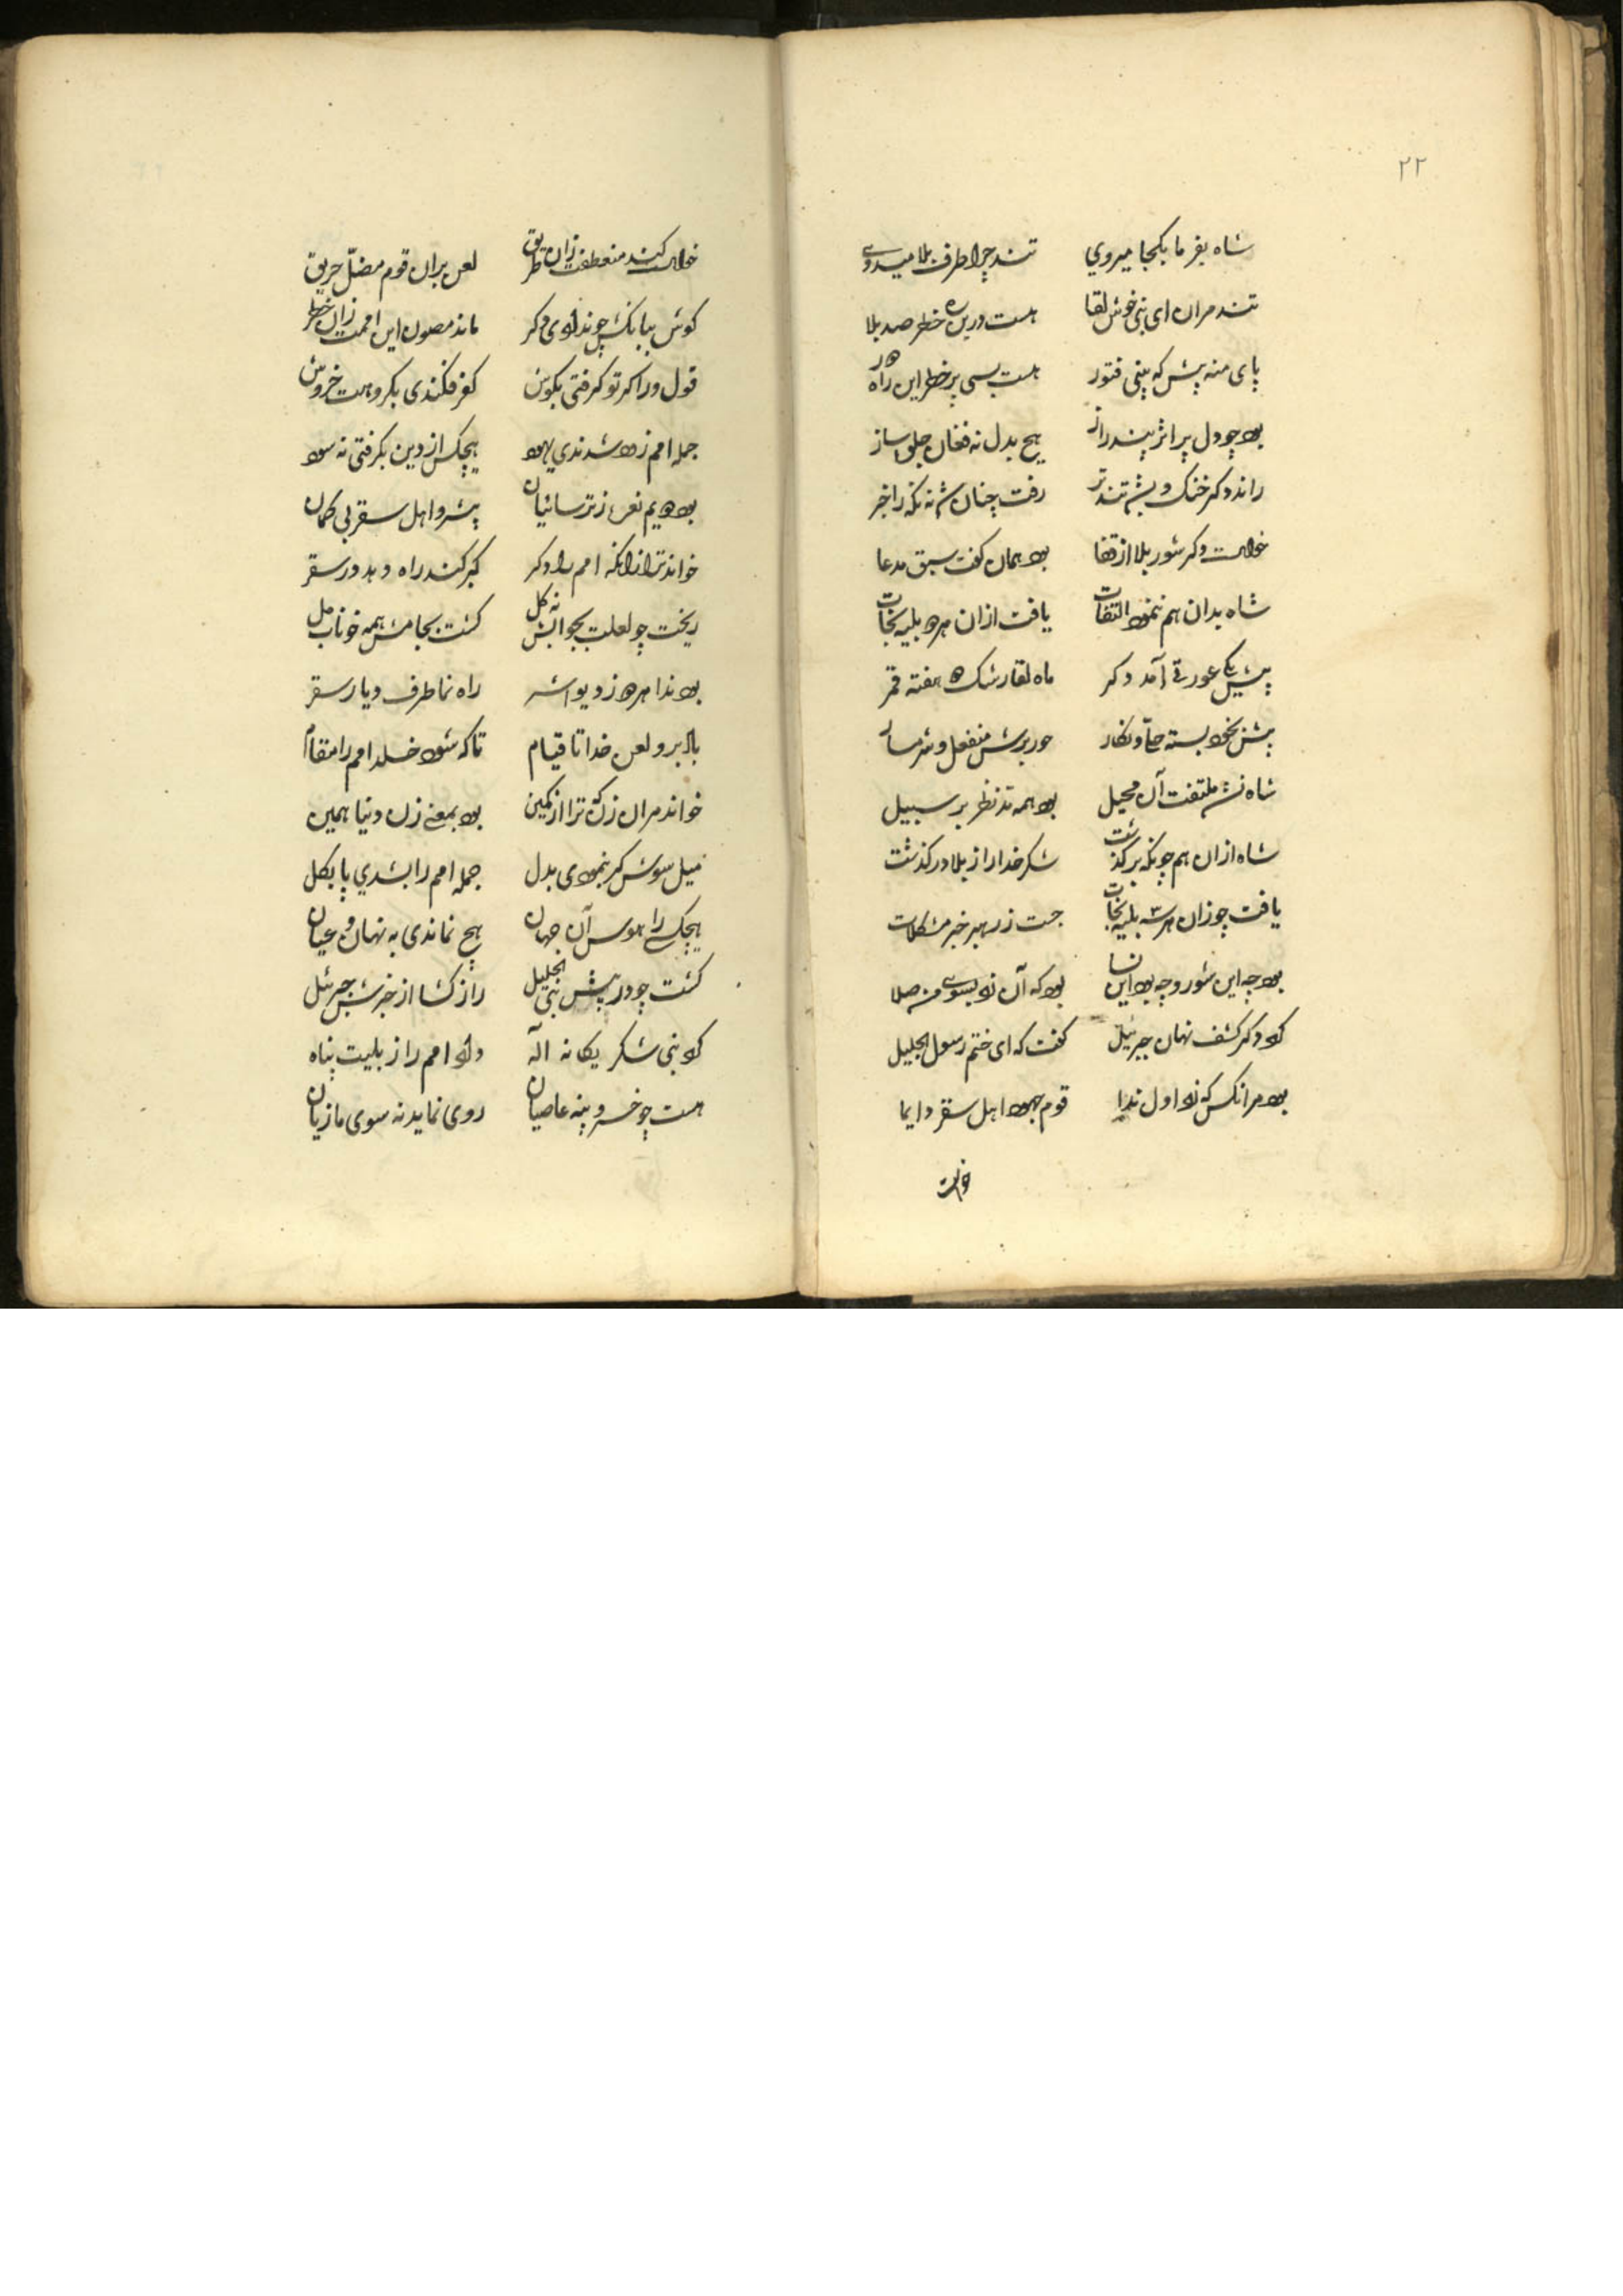 ۲۲
شاه بفرما بکجا میروي تند چرا طرف بلا میدوی
تند مران ای نبی خوش لقا هست درین ره خطر صد بلا
پای منه پیش که بینی فتور هست بسی پر خطر این راه دور
بود چو دل پر اثر پند راز هیچ بدل نه فغان جلوه ساز
راند دگر خنک و بشد تندتر رفت چنان شه نه نکه را خبر
خواست دگر شور بلا از قفا بود همان گفت سبق مدعا
شاه بدان هم ننمود التفات یافت ازان هر دو بلیه نجات
پیش یکی عورتی آمد دگر ماه لقا رشک ده هفته قمر
پیش بخود بسته نگار حور برش منفعل و شرمسار
شاه نشد ملتفت آن محیل بود همه مد نظر بر سبیل
شاه ازان هم چونکه برگذشت شکر خدا را ز بلا درگذشت
یافت چو زان هر سه بلیه نجات جست ز رهبر خبر مشکلات
بود چه این شور و چه بود این ندا بود که آن زد بسوی من صلا
کرد دگر کشف نهان جبرئیل گفت که ای ختم رسول الجلیل
بود مر آنکس که زد اول ندا قوم جهود اهل سقر دایما
خواست
خواست کند منعطفت زان طریق لعن بران قوم مضل حریق
گوش ببانکش چو ندادی دگر ماند مصون این اممت زان خطر
قول ورا گر تو گرفتی بگوش کفر فکندی بگروهت خروش
جمله امم زود شدندي یهود هیچکس از دین نگرفتی نه سود
بود دویم نعره ز ترسائیان پیشرو اهل سقر بی گمان
خواند ترا زانکه امم را دگر کبر کند راه و بد در سقر
ریخت چو لعلت بجوابش نه گل گشت بجامش همه خوناب مل
بود ندا هر دو ز دیو اشر راه نما طرف دیار سقر
باد برو لعن خدا تا قیام تا که شود خلد امم را مقام
خواند مران زن که ترا از کمین بود بمعنی زن دنیا همین
میل سویش گر بنمودی بدل جمله امم را بشدي پا بگل
هیچکسی را هوس آن جهان هیچ نماندی به نهان و عیان
گشت چو در پیش نبی الجلیل راز گشا از خبرش جبرئیل
کرد نبی شکر یگانه اله داد امم را ز بلیت پناه
هست چو خسرو پنه عاصیان روی نماید نه سوی ما زیان